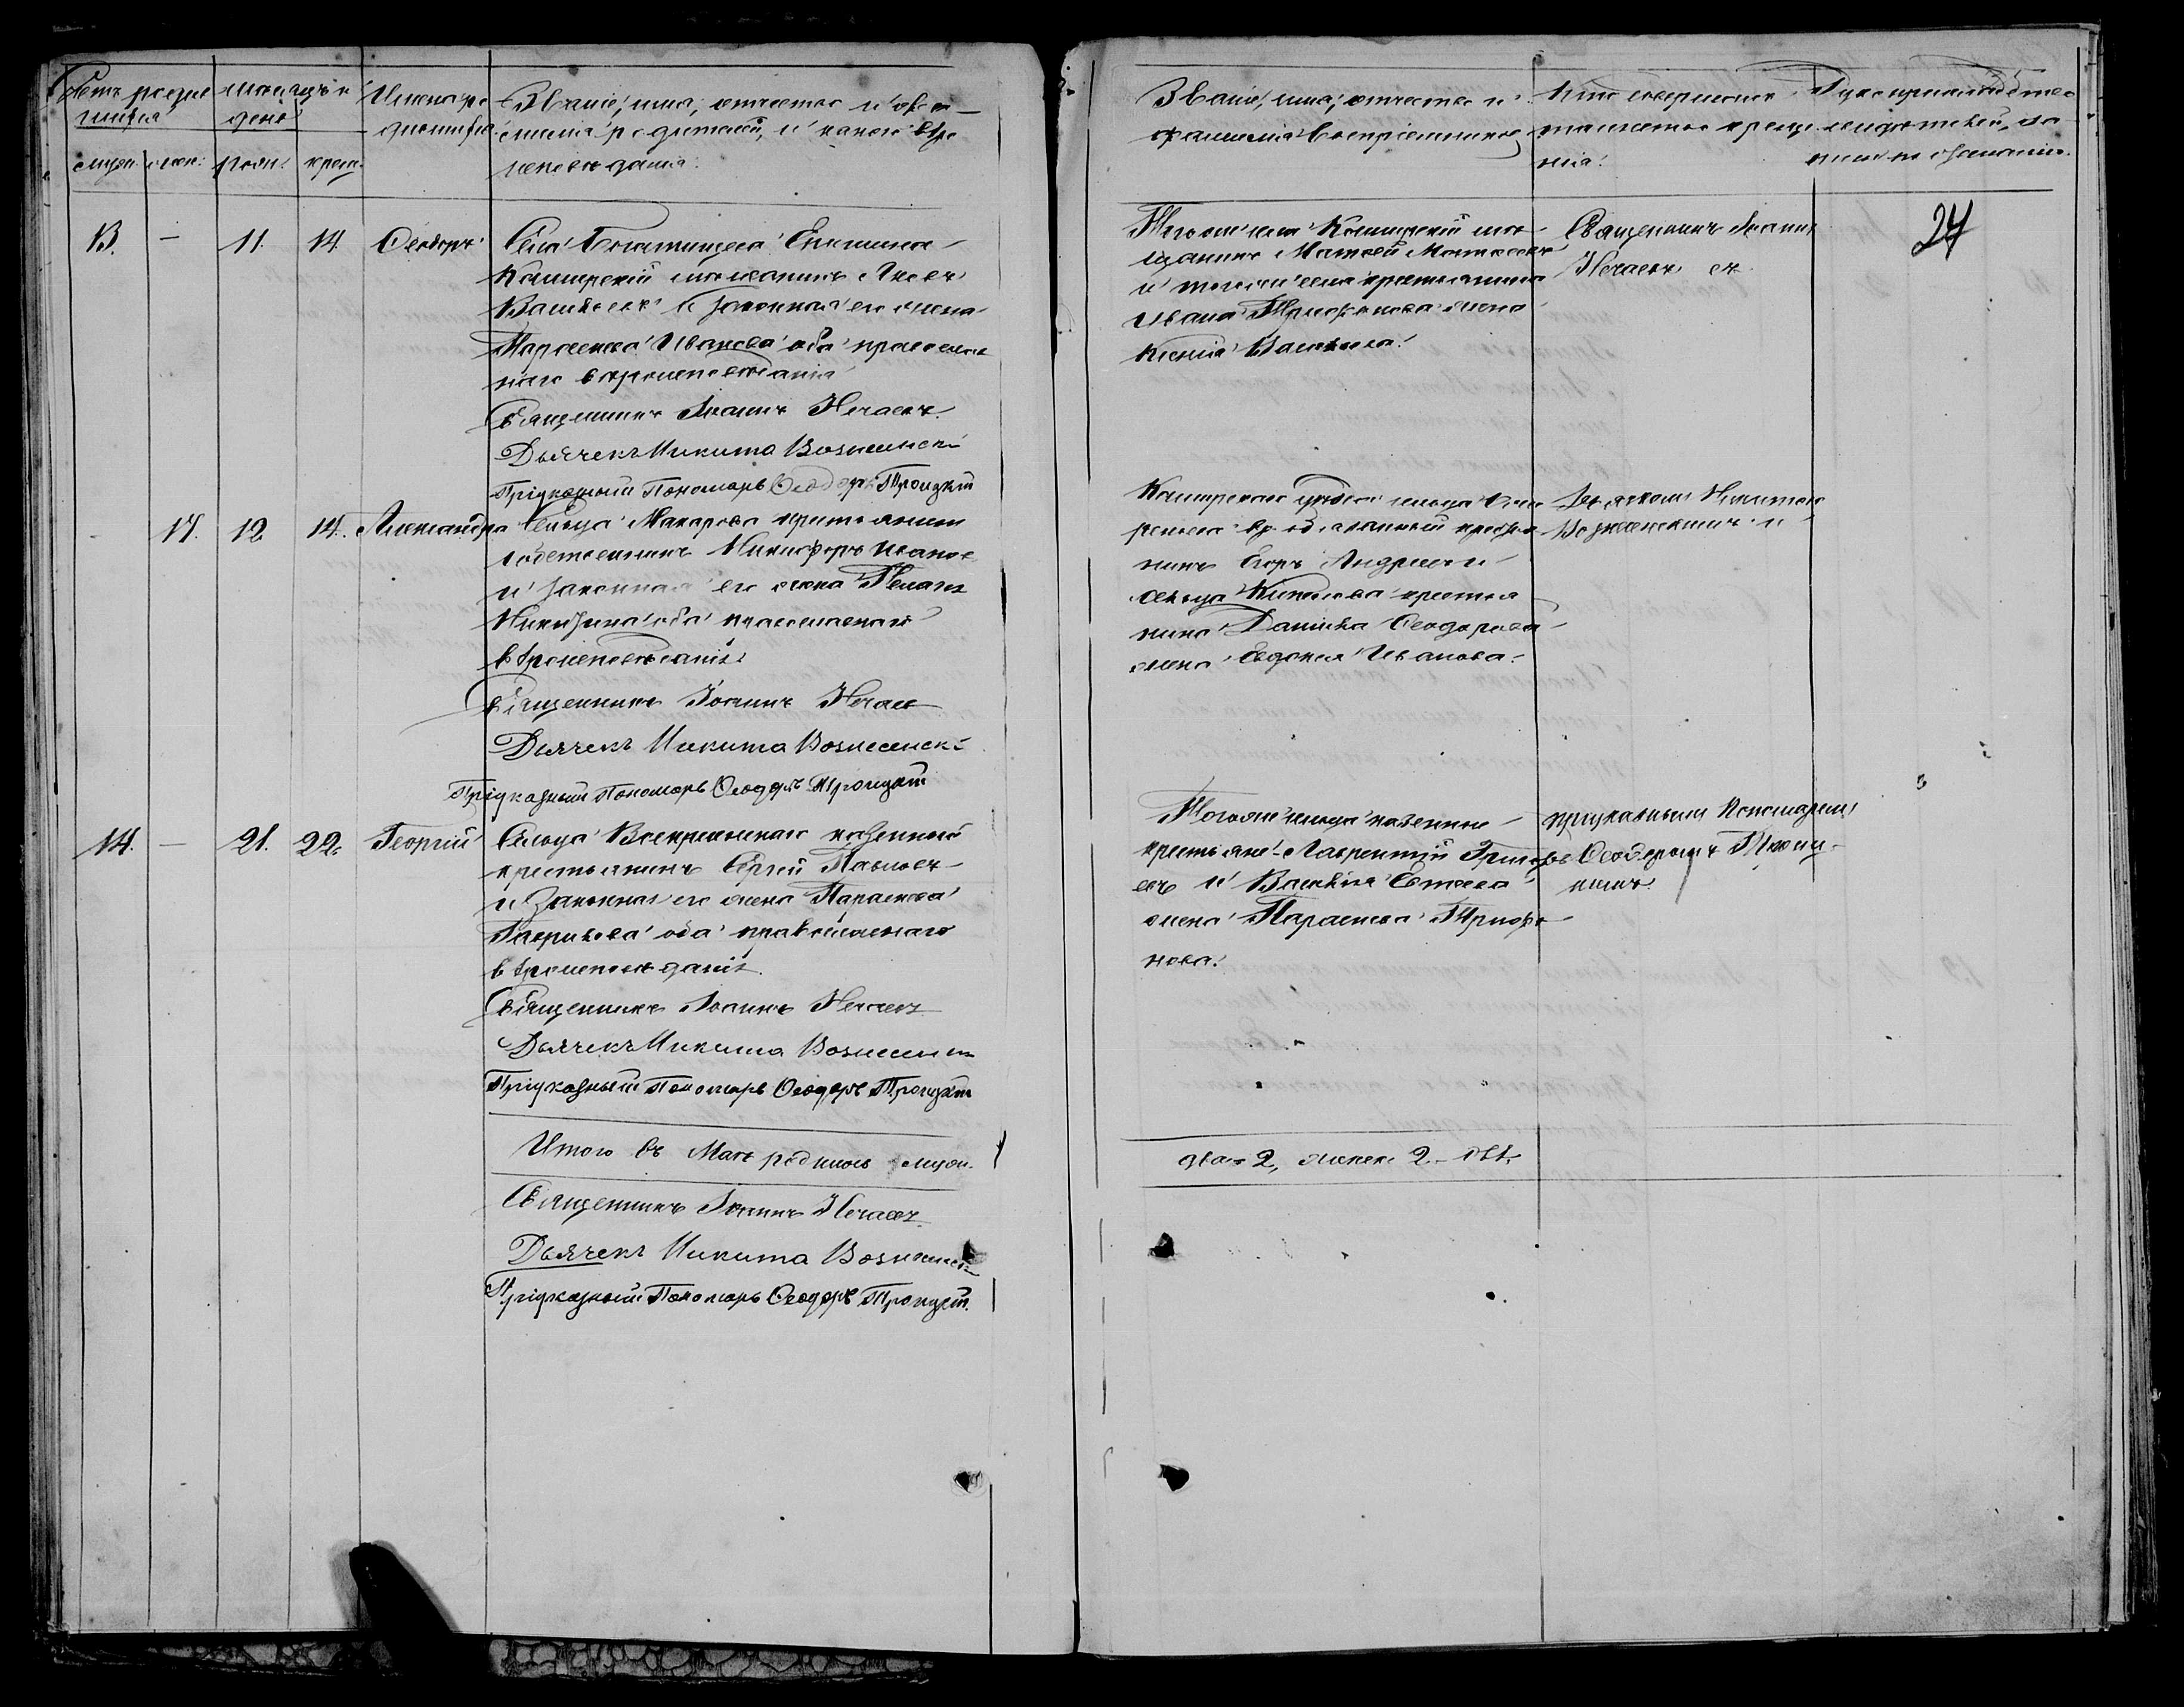 Счетъ родив
шихся
муж: жен:
месяцъ и
день
рожд: крещ:
Имена ро
дившихся
Званіе, имя, отчество и фа
милія родителей, и какого вѣро
исповѣданія:
13. — 11. 14. Ѳеодоръ
Села Богатищева Епишина
Каширскій мѣщанинъ Яковъ
Васильевъ и законная его жена
Параскева Иванова оба православ
наго вѣроисповѣданія
Священникъ Іоаннъ Нечаевъ
Дьячекъ Никита Вознесенскі
Пріуказный Пономарь Ѳеодоръ Троицкій
- 17. 12 14. Александра
Сельца Макарова крестьянинъ
собственникъ Никифоръ Иванов
и законная его жена Пелагея
Никитина оба православнаго
вѣроисповѣданія:
Священникъ Іоаннъ Нечаев
Дьячекъ Никита Вознесенскі
Пріуказный Пономарь Ѳеодоръ Троицкій
14. — 21. 22. Георгій
Сельца Воскресенскаго казенный
крестьянинъ Сергей Павловъ
и Законная его жена Параскева
Гаврилова оба православнаго
вѣроисповѣданія.
Священникъ Іоаннъ Нечаевъ
Дьячекъ Никита Вознесенскі
Пріуказный Пономарь Ѳеодоръ Троицкій
Итого въ Маѣ родилось муж.
Священникъ Іоаннъ Нечаевъ
Дьячекъ Никита Вознесенскі
Пріуказный Пономарь Ѳеодоръ Троицкій.
Званіе, имя, отчество и
фамилія Воспріемниковъ
Кто совершалъ
таинство креще
нія:
Рукоприкладство
свидѣтелей, за
писи по желанію.
24
Тогоже села Каширскій мѣ
щанинъ Матвей Матвеевъ
и тогоже села крестьянина
Ивана Трифонова жена
Ксенія Васильева.
Священникъ Іоаннъ
Нечаевъ съ
Каширскаго уѣзда сельца
вр. обязанный крестья
нинъ Егоръ Андреевъ и
сельца крестья
нина Данила Ѳеодорова
жена Евдокия Иванова.
Дьячкомъ Никитою
Вознесенскимъ и
Тогоже сельца казенные
крестьяне Лаврентій Григорь
евъ и Василія
жена Параскева Трифо
нова.
пріуказнымъ Пономаремъ
Ѳеодоромъ Троиц
кимъ.
два 2, женск 2.